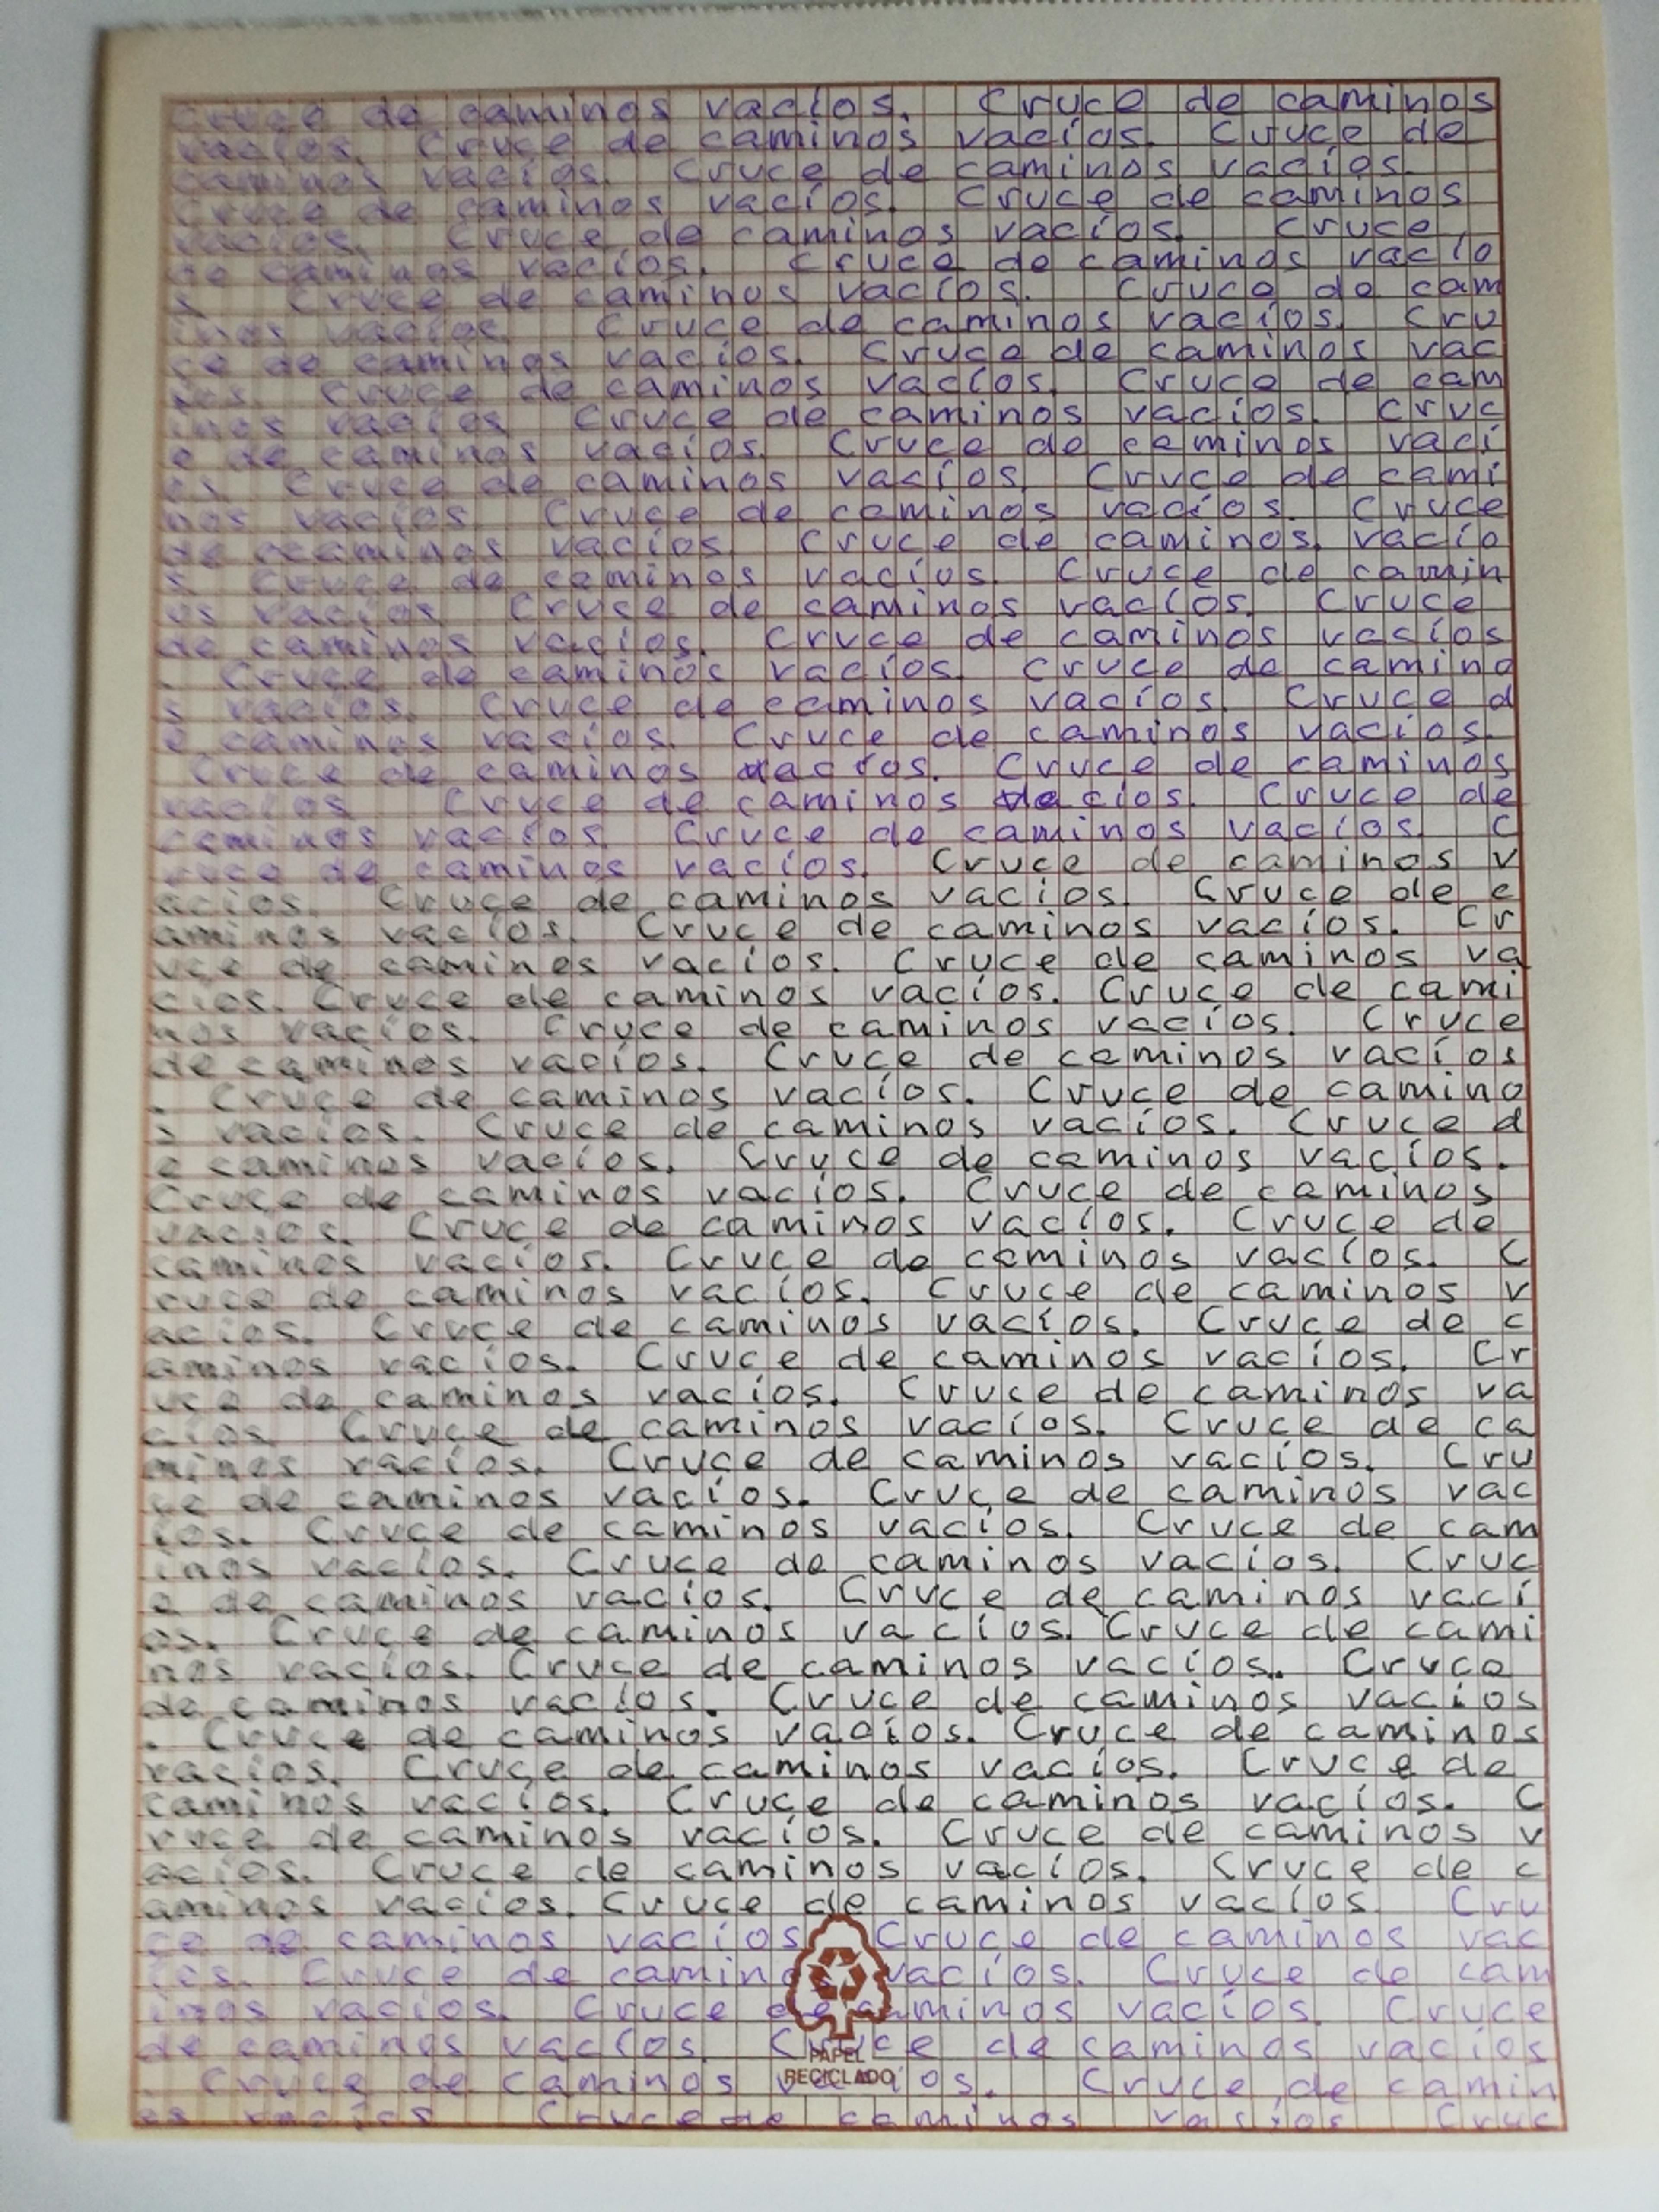 Cruce de caminos vacíos. Cruce de caminos
vacíos. Cruce de caminos vacíos. Cruce de
caminos vacíos. Cruce de caminos vacíos.
Cruce de caminos vacíos. Cruce de caminos
vacíos. Cruce de caminos vacíos. Cruce
de caminos vacíos. Cruce de caminos vacío
s Cruce de caminos vacíos. Cruce de cam
inos vacíos. Cruce de caminos vacíos. Cru
ce de caminos vacíos. Cruce de caminos vac
íos. Cruce de caminos vacíos. Cruce de cam
inos vacíos. Cruce de caminos vacíos. Cruc
e de caminos vacíos. Cruce de caminos vací
os. Cruce de caminos vacíos. Cruce de cami
nos vacíos. Cruce de caminos vacíos. Cruce
de ccaminos vacíos. Cruce de caminos. vacío
s. Cruce de caminos vacíos. Cruce de camin
os vacíos. Cruce de caminos vacíos. Cruce
de caminos vacíos. Cruce de caminos vacíos
. Cruce de caminos vacíos. Cruce de camino
s vacíos. Cruce de caminos vacíos. Cruce d
e caminos vacíos. Cruce de caminos vacíos.
Cruce de caminos vacíos. Cruce de caminos
vacíos. Cruce de caminos vacíos. Cruce de
caminos vacíos. Cruce de caminos vacíos. C
ruce de caminos vacíos. Cruce de caminos v
acíos. Cruce de caminos vacíos. Cruce de c
aminos vacíos. Cruce de caminos vacíos. Cr
uce de caminos vacíos. Cruce de caminos va
cíos. Cruce de caminos vacíos. Cruce de cami
nos vacíos. Cruce de caminos vacíos. Cruce
de caminos vacíos. Cruce de caminos vacíos
. Cruce de caminos vacíos. Cruce de camino
s vacíos. Cruce de caminos vacíos. Cruce d
e caminos vacíos. Cruce de caminos vacíos.
Cruce de caminos vacíos. Cruce de caminos
vacíos. Cruce de caminos vacíos. Cruce de
caminos vacíos. Cruce de caminos vacíos. C
ruce de caminos vacíos. Cruce de caminos v
acíos. Cruce de caminos vacíos. Cruce de c
aminos vacíos. Cruce de caminos vacíos. Cr
uce de caminos vacíos. Cruce de caminos va
cíos Cruce de caminos vacíos. Cruce de ca
minos vacíos. Cruce de caminos vacíos. Cru
ce de caminos vacíos. Cruce de caminos vac
íos. Cruce de caminos vacíos. Cruce de cam
inos vacíos. Cruce de caminos vacíos. Cruc
e de caminos vacíos. Cruce de caminos vací
os. Cruce de caminos vacíos. Cruce de cami
nos vacíos. Cruce de caminos vacíos. Cruce
de caminos vacíos. Cruce de caminos vacíos
. Cruce de caminos vacíos. Cruce de caminos
vacíos. Cruce de caminos vacíos. Cruce de
caminos vacíos. Cruce de caminos vacíos. C
ruce de caminos vacíos. Cruce de caminos v
acíos. Cruce de caminos vacíos. Cruce de c
aminos vacíos. Cruce de caminos vacíos. Cru
ce de caminos vacíos. Cruce de caminos vac
íos. Cruce de caminos vacíos. Cruce de cam
inos vacíos. Cruce de caminos vacíos. Cruce
de caminos vacíos. Cruce de caminos vacíos
. Cruce de caminos vacíos. Cruce de camin
os vacíos Cruce de caminos vacíos Cruc
PAPEL
RECICLADO